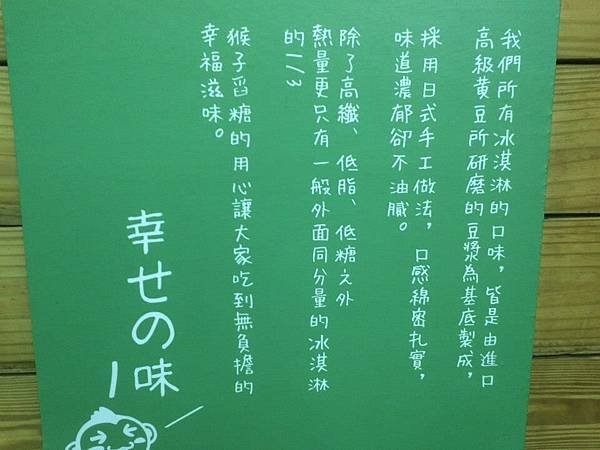 我們所有冰淇淋的口味，皆是由進口
高級黃豆所研磨的豆漿為基底製成，
採用日式手工做法，口感綿密扎實，
味道濃郁卻不油膩。
除了高纖、低脂、低糖之外
熱量更只有一般外面同分量的冰淇淋
的1/3
猴子舀糖的用心讓大家吃到無負擔的
幸福滋味。
幸せの
味